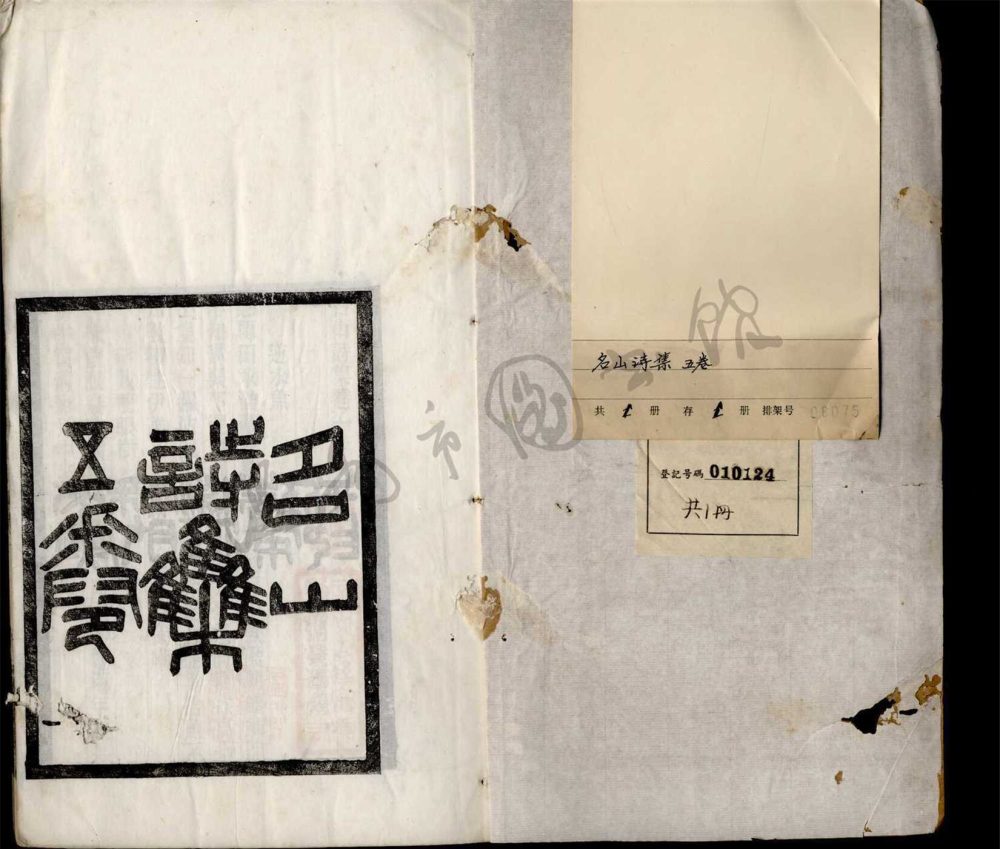 名山
詩集
五卷
名山诗集 五卷
共 1 册 存 1 册 排架号
登記号碼 010124
共1册
市圖書館